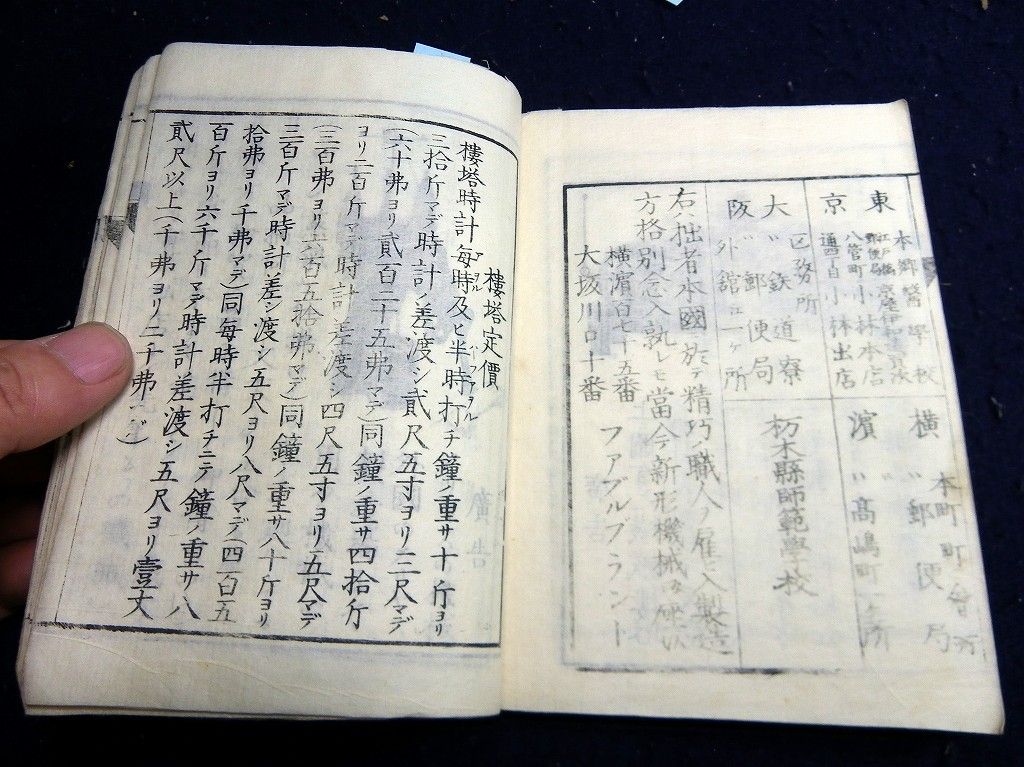 東京
本郷醫學校
江戸橋驛便局
小林本店
八管町
通四丁目小林出店
横濱
本町町會所
〃郵便局
〃髙嶋町
大阪
区務所
〃鉄道寮
〃郵便局
外舘ヱ一ヶ所
栃木縣師範學校
右ハ拙者本國ニ於テ精巧ノ職人ヲ雇ヒ入製造
方格別念入熟レモ當今新形機械
横濱百七十五番
大坂川口十番
ファブルブラント
樓塔定價
樓塔時計每時及ヒ半時打チ鐘ノ重サ十斤ヨリ
三拾斤マデ時計ノ差渡シ貳尺五寸ヨリ三尺マデ
(六十弗ヨリ貳百二十五弗マデ)同鐘ノ重サ四拾斤
ヨリ二百斤マデ時計ノ差渡シ四尺五寸ヨリ五尺マデ
(三百弗ヨリ六百五拾弗マデ)同鐘ノ重サ八十斤ヨリ
三百斤マデ時計差シ渡シ(五尺ヨリ八尺マデ(四百五
拾弗ヨリ千弗マデ)同每時半打チニテ鐘ノ重サ八
百斤ヨリ六千斤マデ時計差渡シ五尺ヨリ壹丈
貳尺以上(千弗ヨリ二千弗マデ)